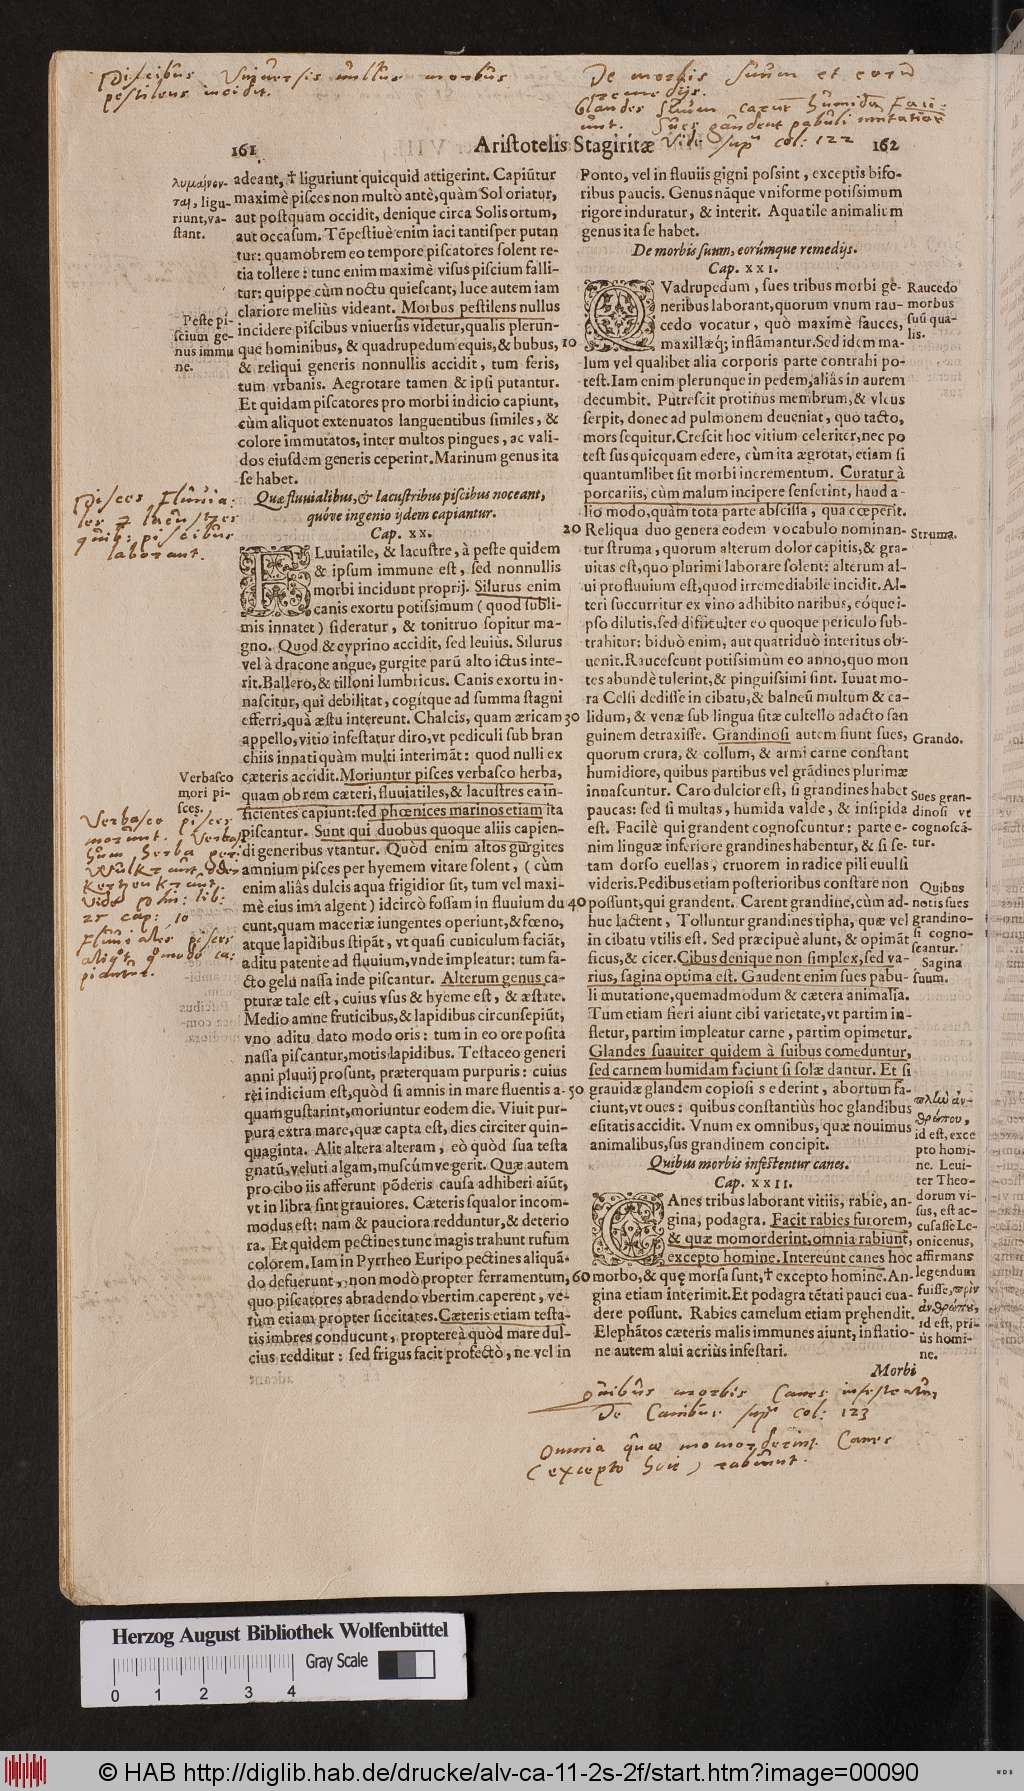 Piscibus Vniuersis nullus morbus
pestilens incidit.
De morbis Suum et eorum
remedijs.
Glandes Suum carnem humidam faci-
unt. Sues gaudent pabuli mutatione
Vide supra col: 122
161 Aristotelis Stagiritæ 162
λυμαίνον-
ται, ligu-
riunt, va-
stant.
Peste pi-
scium ge-
nus immu
ne.
Pisces fluuia-
les & lacustres
quibus piscibus
laborant.
Verbasco
mori pi-
sces.
Verbasco pisces
moriuntur.
adeant, † liguriunt quicquid attigerint. Capiūtur
maximè pisces non multò antè, quàm Sol oriatur,
aut postquam occidit, denique circa Solis ortum,
aut occasum. Tēpestiuè enim iaci tantisper putan
tur: quamobrem eo tempore piscatores solent re-
tia tollere: tunc enim maximè visus piscium falli-
tur: quippe cùm noctu quiescant, luce autem iam
clariore meliùs videant. Morbus pestilens nullus
incidere piscibus vniuersis videtur, qualis plerun-
que hominibus, & quadrupedum equis, & bubus, 10
& reliqui generis nonnullis accidit, tum feris,
tum vrbanis. Aegrotare tamen & ipsi putantur.
Et quidam piscatores pro morbi indicio capiunt,
cùm aliquot extenuatos languentibus similes, &
colore immutatos, inter multos pingues, ac vali-
dos eiusdem generis ceperint. Marinum genus ita
se habet.
Quæ fluuialibus, & lacustribus piscibus noceant,
quóve ingenio ijdem capiantur.
Cap. XX. 20
FLuuiatile, & lacustre, à peste quidem
& ipsum immune est, sed nonnullis
morbi incidunt proprij. Silurus enim
canis exortu potissimum (quod subli-
mis innatet) sideratur, & tonitruo sopitur ma-
gno. Quod & cyprino accidit, sed leuiùs. Silurus
vel à dracone angue, gurgite parū alto ictus inte-
rit. Ballero, & tilloni lumbricus. Canis exortu in-
nascitur, qui debilitat, cogitque ad summa stagni
efferri, quà æstu intereunt. Chalcis, quam æricam 30
appello, vitio infestatur diro, vt pediculi sub bran
chiis innati quàm multi interimāt: quod nulli ex
cæteris accidit. Moriuntur pisces verbasco herba,
quam ob rem cæteri, fluuiatiles, & lacustres ea in-
ficientes capiunt: sed phœnices marinos etiam ita
piscantur. Sunt qui duobus quoque aliis capien-
di generibus vtantur. Quòd enim altos gurgites
amnium pisces per hyemem vitare solent, (cùm
enim aliâs dulcis aqua frigidior sit, tum vel maxi-
mè eius ima algent) idcircò fossam in fluuium du 40
cunt, quam maceriæ iungentes operiunt, & fœno,
atque lapidibus stipāt, vt quasi cuniculum faciāt,
aditu patente ad fluuium, vnde impleatur: tum fa-
cto gelu nassa inde piscantur. Alterum genus ca-
pturæ tale est, cuius vsus & hyeme est, & æstate.
Medio amne fruticibus, & lapidibus circunsepiūt,
vno aditu dato modo oris: tum in eo ore posita
nassa piscantur, motis lapidibus. Testaceo generi
anni pluuij prosunt, præterquam purpuris: cuius
rei indicium est, quòd si amnis in mare fluentis a- 50
quam gustarint, moriuntur eodem die. Viuit pur-
pura extra mare, quæ capta est, dies circiter quin-
quaginta. Alit altera alteram, eò quòd sua testa
gnatū, veluti algam, muscúmve gerit. Quæ autem
pro cibo iis afferunt pōderis causa adhiberi aiūt,
vt in libra sint grauiores. Cæteris squalor incom-
modus est: nam & pauciora redduntur, & deterio
ra. Et quidem pectines tunc magis trahunt rufum
colorem. Iam in Pyrrheo Euripo pectines aliquā-
do defuerunt, non modò propter ferramentum, 60
quo piscatores abradendo vbertim caperent, ve-
rùm etiam propter siccitates. Cæteris etiam testa-
tis imbres conducunt, proptereà quòd mare dul-
cius redditur: sed frigus facit profectò, ne vel in
Ponto, vel in fluuiis gigni possint, exceptis bifo-
ribus paucis. Genus nāque vniforme potissimum
rigore induratur, & interit. Aquatile animalium
genus ita se habet.
De morbis suum, eorúmque remedijs.
Cap. XXI.
QVadrupedum, sues tribus morbi ge-
neribus laborant, quorum vnum rau-
cedo vocatur, quò maximè fauces,
maxillæq; inflāmantur. Sed idem ma-
lum vel qualibet alia corporis parte contrahi po-
test. Iam enim plerunque in pedem, aliâs in aurem
decumbit. Putrescit protinus membrum, & vlcus
serpit, donec ad pulmonem deueniat, quo tacto,
mors sequitur. Crescit hoc vitium celeriter, nec po
test sus quicquam edere, cùm ita ægrotat, etiam si
quantumlibet sit morbi incrementum. Curatur à
porcariis, cùm malum incipere senserint, haud a-
lio modo, quàm tota parte abscissa, qua cœperit.
Reliqua duo genera eodem vocabulo nominan-
tur struma, quorum alterum dolor capitis, & gra-
uitas est, quo plurimi laborare solent: alterum al-
ui profluuium est, quod irremediabile incidit. Al-
teri succurritur ex vino adhibito naribus, eóque i-
pso dilutis, sed difficulter eo quoque periculo sub-
trahitur: biduò enim, aut quatriduò interitus ob-
uenit. Raucescunt potissimùm eo anno, quo mon
tes abundè tulerint, & pinguissimi sint. Iuuat mo-
ra Celsi dedisse in cibatu, & balneū multum & ca-
lidum, & venæ sub lingua sitæ cultello adacto san
guinem detraxisse. Grandinosi autem fiunt sues,
quorum crura, & collum, & armi carne constant
humidiore, quibus partibus vel grādines plurimæ
innascuntur. Caro dulcior est, si grandines habet
paucas: sed si multas, humida valde, & insipida
est. Facilè qui grandent cognoscuntur: parte e-
nim linguæ inferiore grandines habentur, & si se-
tam dorso euellas, cruorem in radice pili euulsi
videris. Pedibus etiam posterioribus constare non
possunt, qui grandent. Carent grandine, cùm ad-
huc lactent, Tolluntur grandines tipha, quæ vel
in cibatu vtilis est. Sed præcipuè alunt, & opimāt
ficus, & cicer. Cibus denique non simplex, sed va-
rius, sagina optima est. Gaudent enim sues pabu-
li mutatione, quemadmodum & cætera animalia.
Tum etiam fieri aiunt cibi varietate, vt partim in-
fletur, partim impleatur carne, partim opimetur.
Glandes suauiter quidem à suibus comeduntur,
sed carnem humidam faciunt si solæ dantur. Et si
grauidæ glandem copiosi s ederint, abortum fa-
ciunt, vt oues: quibus constantiùs hoc glandibus
esitatis accidit. Vnum ex omnibus, quæ nouimus
animalibus, sus grandinem concipit.
Quibus morbis infestentur canes.
Cap. XXII.
CAnes tribus laborant vitiis, rabie, an-
gina, podagra. Facit rabies furorem,
& quæ momorderint, omnia rabiunt,
excepto homine. Intereunt canes hoc
morbo, & quę morsa sunt, † excepto homine. An-
gina etiam interimit. Et podagra tētati pauci eua-
dere possunt. Rabies camelum etiam pręhendit.
Elephātos cæteris malis immunes aiunt, inflatio-
ne autem alui acriùs infestari.
Morbi
Raucedo
morbus
suū qua-
lis.
Struma.
Grando.
Sues gran-
dinosi vt
cognoscā-
tur.
Quibus
notis sues
grandino-
si cogno-
scantur.
Sagina
suum.
πλὴν ἀν-
θρώπου,
id est, exce
pto homi-
ne. Leui-
ter Theo-
dorum vi-
sus, est ac-
cusasse Le-
onicenus,
affirmans
legendum
fuisse, πρὶν
ἀνθρώπου,
id est, pri-
ùs homi-
ne.
Quibus morbis Canes infestentur
De Canibus supra col: 123
Omnia quæ momorderint Canes
(excepto homine) rabiunt.
Herzog August Bibliothek Wolfenbüttel
Gray Scale
0 1 2 3 4
© HAB http://diglib.hab.de/drucke/alv-ca-11-2s-2f/start.htm?image=00090